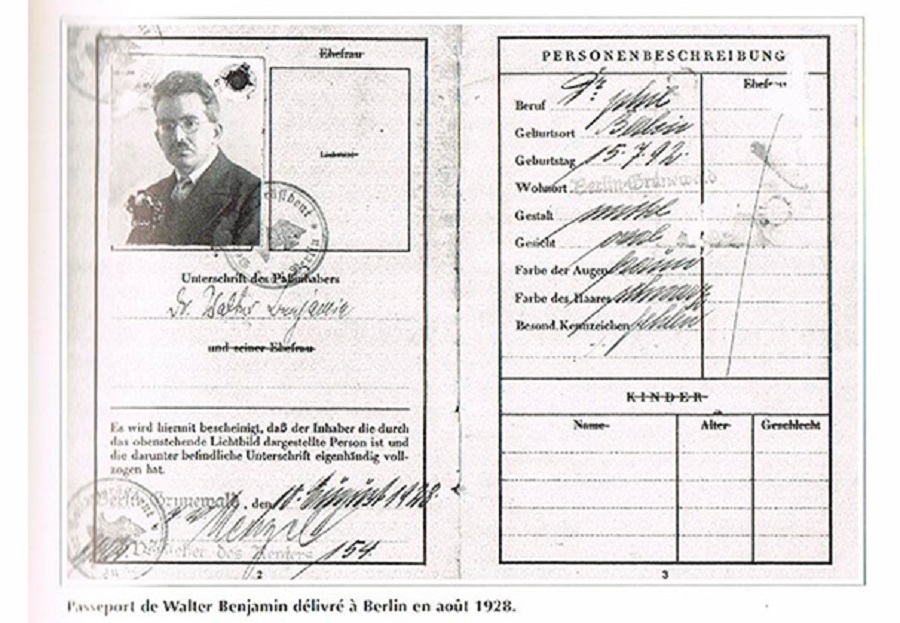 Ehefrau
Lichtbild
Unterschrift des Paßinhabers
Dr. Walter Benjamin
und seiner Ehefrau
Es wird hiermit bescheinigt, daß der Inhaber die durch
das obenstehende Lichtbild dargestellte Person ist und
die darunter befindliche Unterschrift eigenhändig voll-
zogen hat.
Berlin-Grunewald, den 10. August 1928.
Vorsteher des Amtes 154
2
PERSONENBESCHREIBUNG
Ehefrau
Beruf Dr. phil
Geburtsort Berlin
Geburtstag 15.7.92.
Wohnort Berlin-Grunewald
Gestalt mittel
Gesicht oval
Farbe der Augen braun
Farbe des Haares schwarz
Besond. Kennzeichen fehlen
KINDER
Name Alter Geschlecht
3
Passeport de Walter Benjamin délivré à Berlin en août 1928.